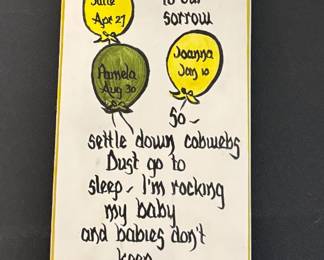 Julie
Apr 27
to our
sorrow
Joanna
Jan 10
Pamela
Aug 30
So~
settle down cobwebs
Dust go to
sleep~ I'm rocking
my baby
and babies don't
keep